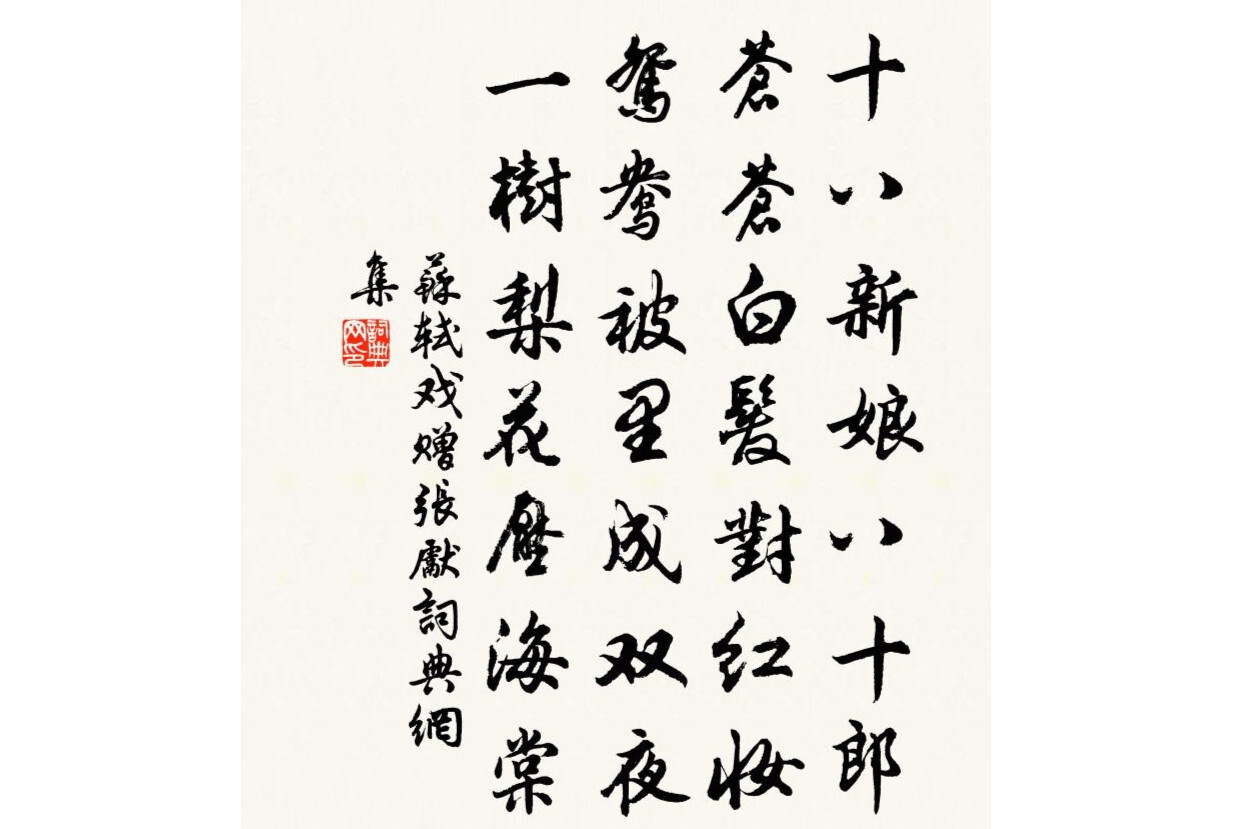 十八新娘八十郎
蒼蒼白髮對红妝
鴛鴦被里成双夜
一樹梨花壓海棠
蘇軾戏赠張獻詞典網
集
詞典
网印